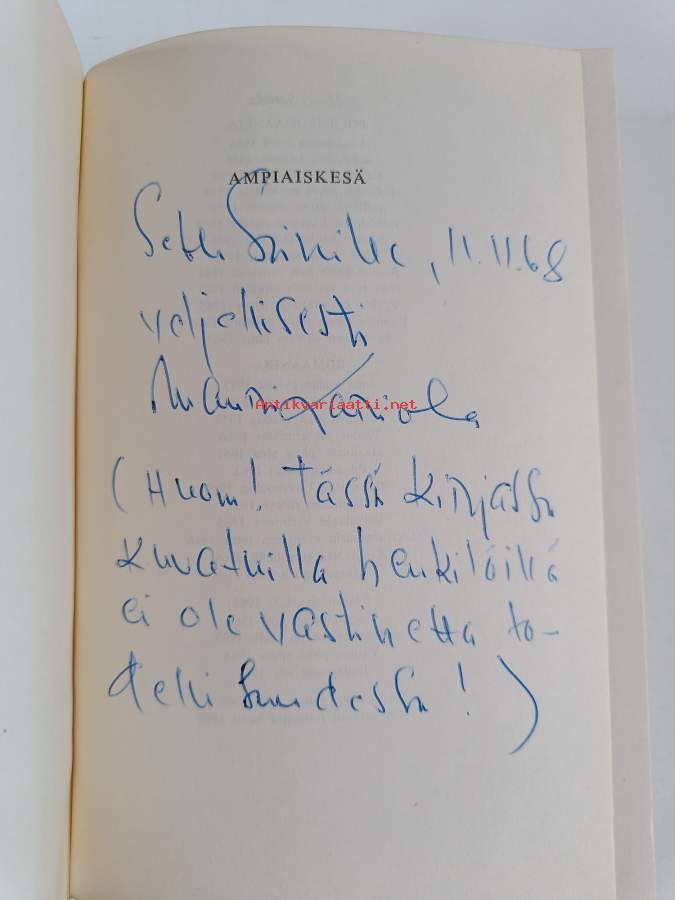 AMPIAISKESÄ
11.11.68
veljellisesti
Mauri Sariola
Antikvariaatti.net
(Huom! Tässä kirjassa
kuvatuilla henkilöillä
ei ole vastinetta to-
dellisuudessa!)